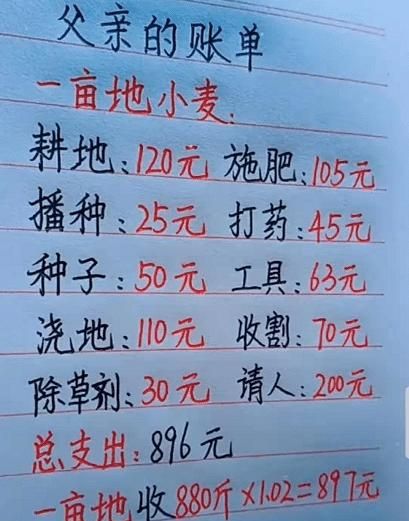 父亲的账单
一亩地小麦:
耕地:120元 施肥:105元
播种:25元 打药:45元
种子:50元 工具:63元
浇地:110元 收割:70元
除草剂:30元 请人:200元
总支出:896元
一亩地收880斤×1.02=897元